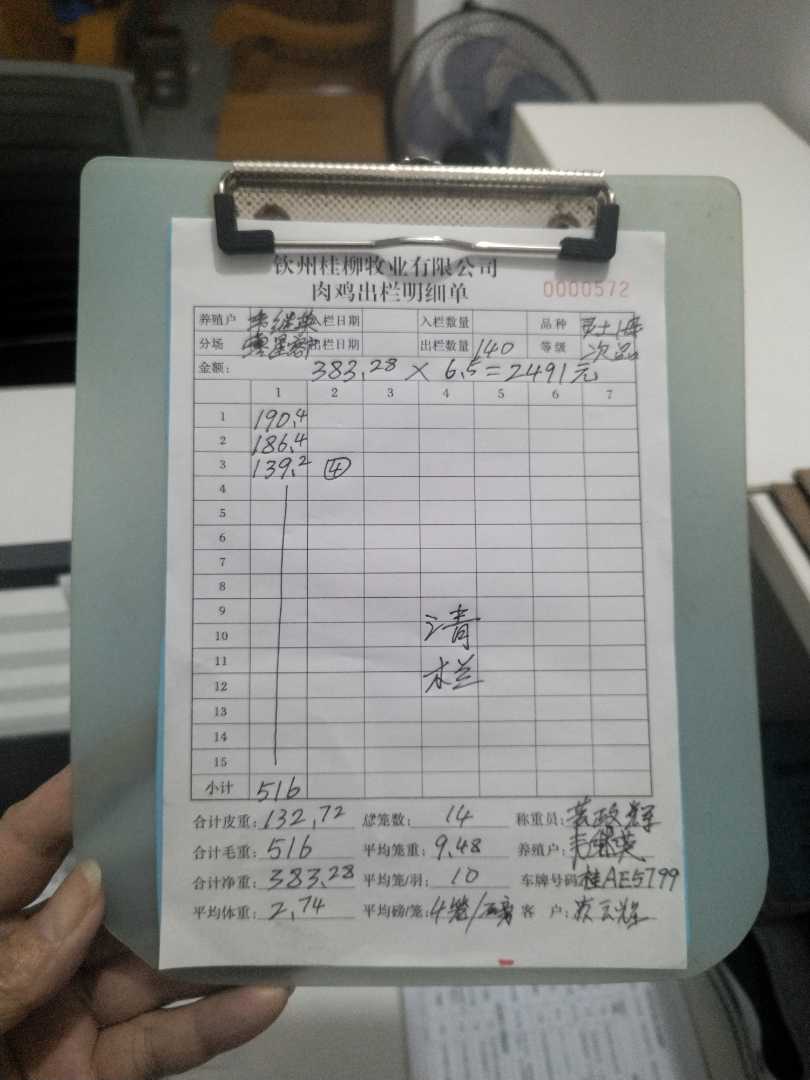 钦州桂柳牧业有限公司
肉鸡出栏明细单 0000572
养殖户 入栏日期 入栏数量 品种
分场 出栏日期 出栏数量 140 等级 次品
金额: 383.28 × 6.5=2491元
1 2 3 4 5 6 7
1 190.4
2 186.4
3 139.2 ④
4
5
6
7
8
9 清
10
11
12 栏
13
14
15
小计 516
合计皮重: 132.72 总笼数: 14 称重员: 政辉
合计毛重: 516 平均笼重: 9.48 养殖户: 英
合计净重: 383.28 平均笼/羽: 10 车牌号码 桂AE5799
平均体重: 2.74 平均磅/笼: 4笼/磅 客 户: